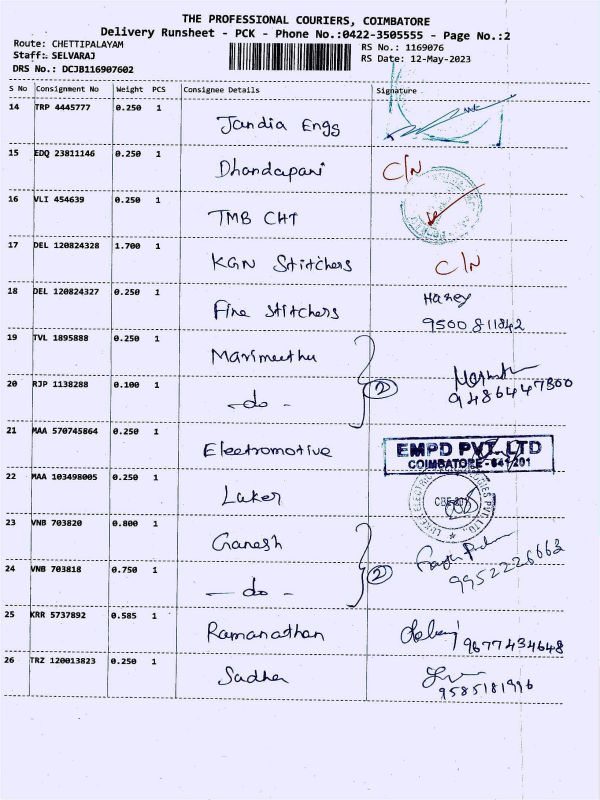 THE PROFESSIONAL COURIERS, COIMBATORE
Delivery Runsheet - PCK - Phone No.:0422-3505555 - Page No.:2
Route: CHETTIPALAYAM RS No.: 1169076
Staff: SELVARAJ RS Date: 12-May-2023
DRS No.: DCJB116907602
S No Consignment No Weight PCS Consignee Details Signature
14 TRP 4445777 0.250 1 Jandia Engg
15 EDQ 23811146 0.250 1 Dhandapani C/N
16 VLI 454639 0.250 1 TMB CHT
17 DEL 120824328 1.700 1 KGN Stitchers C/N
18 DEL 120824327 0.250 1 Fine Stitchers
9500811842
19 TVL 1895888 0.250 1 Marimuthu
20 RJP 1138288 0.100 1 -do- 2
21 MAA 570745864 0.250 1 Electromotive
EMPD PVT. LTD
COIMBATORE-641 201
22 MAA 103498005 0.250 1 Laker
23 VNB 703820 0.800 1 Ganesh
9952226662
24 VNB 703818 0.750 1 -do- 2
25 KRR 5737892 0.585 1 Ramanathan
9677434648
26 TRZ 120013823 0.250 1 Sadha
9585181996